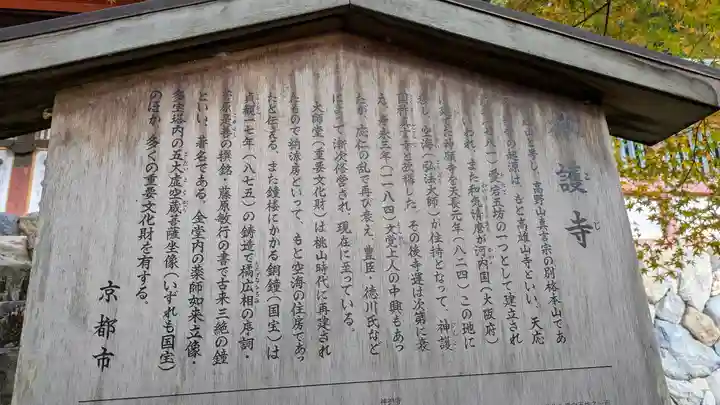 護寺
山と号し、高野山真言宗の別格本山であ
の起源は、もと高雄山寺といい、天応
七八一)愛宕五坊の一つとして建立され
いわれ、また和気清麿が河内国(大阪府)
に建てた神願寺を天長元年(八二四)この地に
し、空海(弘法大師)が住持となって、神護
国祚真言寺と改称した。その後寺運は次第に衰
え、寿永三年(一一八四)文覚上人の中興もあっ
たが、応仁の乱で再び衰え、豊臣・徳川氏など
によって漸次修営され、現在に至っている。
大師堂(重要文化財)は桃山時代に再建され
たもので納涼房といって、もと空海の住房であっ
たと伝える。また鐘楼にかかる銅鐘(国宝)は
貞観一七年(八七五)の鋳造で橘広相の序詞・
菅原是善の撰銘・藤原敏行の書で古来三絶の鐘
といい、著名である。金堂内の薬師如来立像・
多宝塔内の五大虚空蔵菩薩坐像(いずれも国宝)
のほか、多くの重要文化財を有する。
京都市